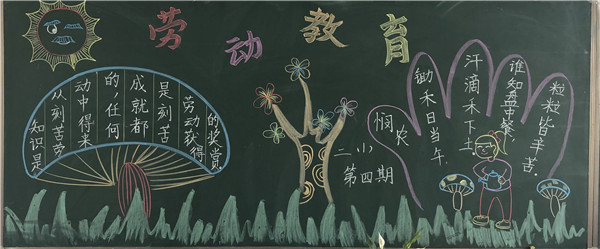 劳动教育
知识是
从刻苦劳
动中得来
的,任何
成就都
是刻苦
劳动获得
的奖赏
二小
第四期
悯农
锄禾日当午
汗滴禾下土
谁知盘中餐
粒粒皆辛苦.